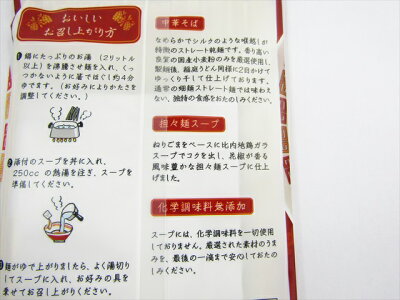 おいしい
お召し上がり方
鍋にたっぷりのお湯(2リットル
以上)を沸騰させ麺を入れ、くっ
つかないように箸でほぐし約4分
ゆでます。(お好みによりかたさを
調整してください。)
❷添付のスープを丼に入れ、
250ccの熱湯を注ぎ、スープを
準備してください。
麺がゆで上がりましたら、よく湯切り
してスープに入れ、お好みの具を
乗せてお召し上がりください。
中華そば
なめらかでシルクのような喉越しが
特徴のストレート乾麺です。香り高い
良質の国産小麦粉のみを厳選使用し、
製麺後、稲庭うどん同様に2日かけて
ゆっくり干して仕上げております。
通常の細麺ストレート麺では味わえ
ない、独特の食感をおたのしみください。
担々麺スープ
ねりごまをベースに比内地鶏ガラ
スープでコクを出し、花椒が香る
風味豊かな担々麺スープに仕上
げました。
化学調味料無添加
スープには、化学調味料を一切使用
しておりません。厳選された素材のうま
みを、最後の一滴まで安心しておたの
しみください。